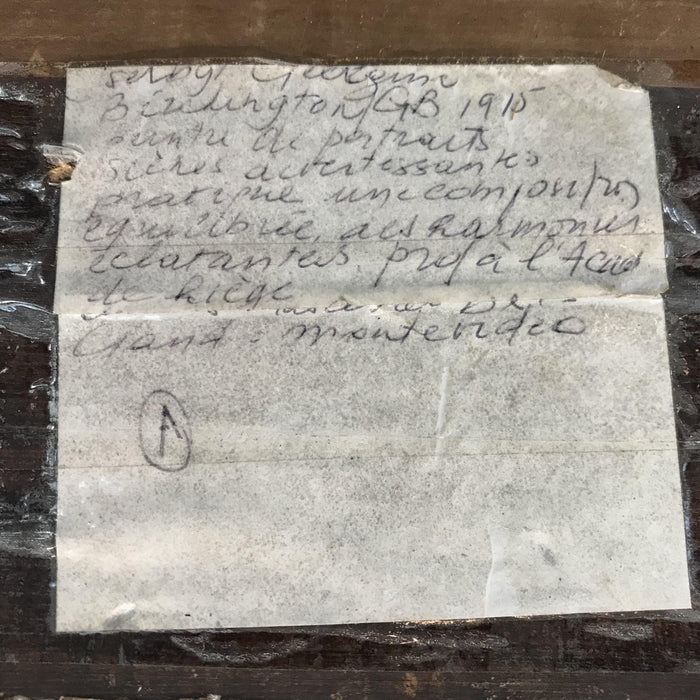 Birdlington, GB 1915
peintre de portraits
scènes divertissantes
pratique une composition
équilibrée, des harmonies
éclatantes, prof à l'Acad
de Liège
Gand : Montevideo
A